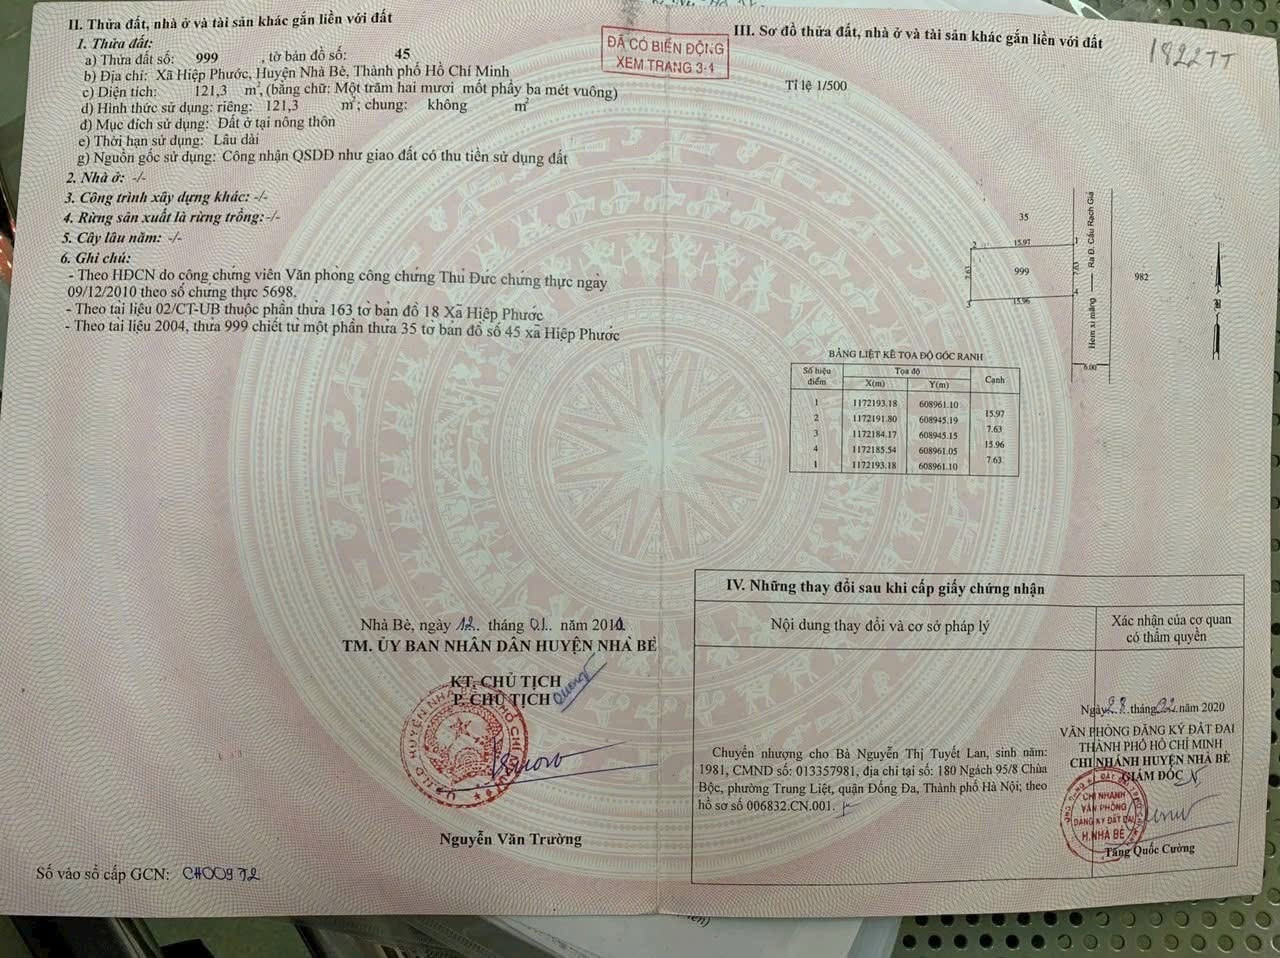 II. Thửa đất, nhà ở và tài sản khác gắn liền với đất
1. Thửa đất:
a) Thửa đất số: 999 , tờ bản đồ số: 45
b) Địa chỉ: Xã Hiệp Phước, Huyện Nhà Bè, Thành phố Hồ Chí Minh
c) Diện tích: 121,3 m², (bằng chữ: Một trăm hai mươi mốt phẩy ba mét vuông)
d) Hình thức sử dụng: riêng: 121,3 m²; chung: không m²
đ) Mục đích sử dụng: Đất ở tại nông thôn
e) Thời hạn sử dụng: Lâu dài
g) Nguồn gốc sử dụng: Công nhận QSDĐ như giao đất có thu tiền sử dụng đất
2. Nhà ở: -/-
3. Công trình xây dựng khác: -/-
4. Rừng sản xuất là rừng trồng: -/-
5. Cây lâu năm: -/-
6. Ghi chú:
- Theo HĐCN do công chứng viên Văn phòng công chứng Thủ Đức chứng thực ngày
09/12/2010 theo số chứng thực 5698.
- Theo tài liệu 02/CT-UB thuộc phần thửa 163 tờ bản đồ 18 Xã Hiệp Phước
- Theo tài liệu 2004, thửa 999 chiết từ một phần thửa 35 tờ bản đồ số 45 xã Hiệp Phước
Nhà Bè, ngày 12 tháng 01 năm 2011
TM. ỦY BAN NHÂN DÂN HUYỆN NHÀ BÈ
KT. CHỦ TỊCH
P. CHỦ TỊCH
Nguyễn Văn Trường
Số vào sổ cấp GCN: CH00972
ĐÃ CÓ BIẾN ĐỘNG
XEM TRANG 3-4
III. Sơ đồ thửa đất, nhà ở và tài sản khác gắn liền với đất
1822TT
Tỉ lệ 1/500
35
2
15.97
1
7.63
999
7.63
3
15.96
4
Hẻm xi măng
Ra Đ. Cầu Rạch Giá
6.00
982
B
BẢNG LIỆT KÊ TỌA ĐỘ GÓC RANH
Số hiệu điểm Tọa độ Cạnh
X(m) Y(m)
1 1172193.18 608961.10
15.97
2 1172191.80 608945.19
7.63
3 1172184.17 608945.15
15.96
4 1172185.54 608961.05
7.63
1 1172193.18 608961.10
IV. Những thay đổi sau khi cấp giấy chứng nhận
Nội dung thay đổi và cơ sở pháp lý
Xác nhận của cơ quan
có thẩm quyền
Chuyển nhượng cho Bà Nguyễn Thị Tuyết Lan, sinh năm:
1981, CMND số: 013357981, địa chỉ tại số: 180 Ngách 95/8 Chùa
Bộc, phường Trung Liệt, quận Đống Đa, Thành phố Hà Nội; theo
hồ sơ số 006832.CN.001.
Ngày 28 tháng 02 năm 2020
VĂN PHÒNG ĐĂNG KÝ ĐẤT ĐAI
THÀNH PHỐ HỒ CHÍ MINH
CHI NHÁNH HUYỆN NHÀ BÈ
GIÁM ĐỐC
CHI NHÁNH
VĂN PHÒNG
ĐĂNG KÝ ĐẤT ĐAI
H.NHÀ BÈ
Tăng Quốc Cường